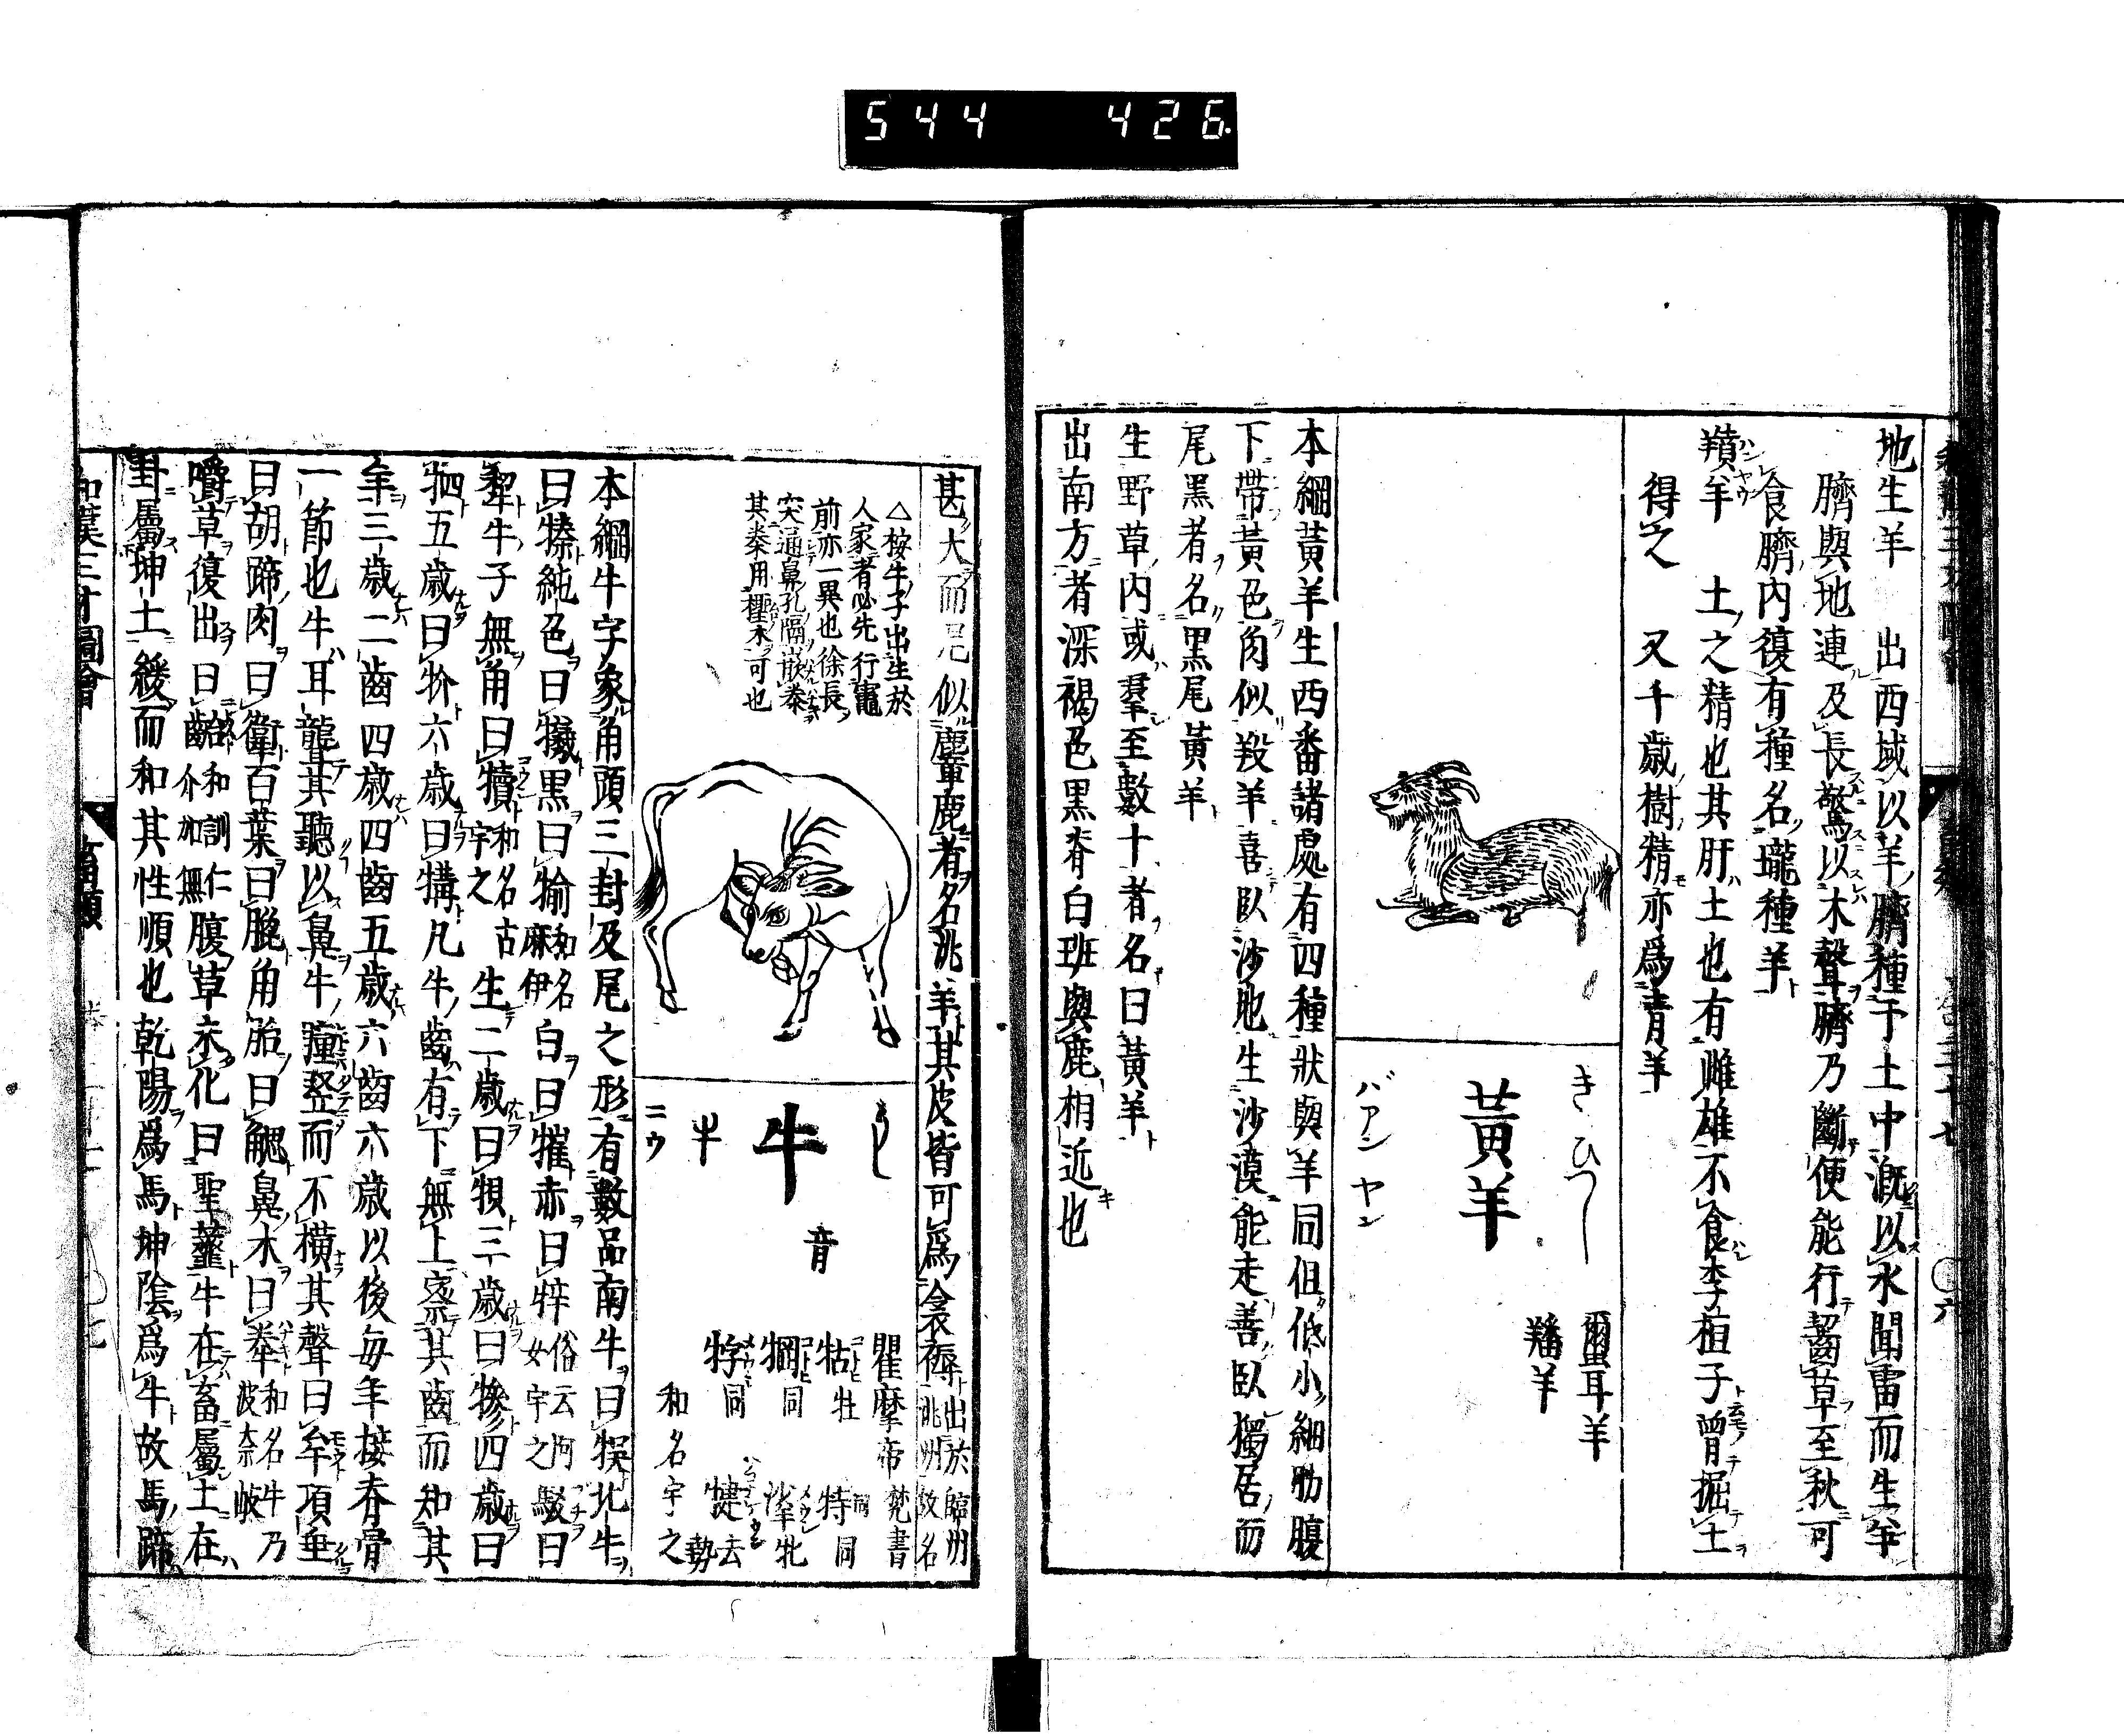 544 426
地生羊 出西域以羊臍種于土中漑以水聞雷而生羊
臍與地連及長驚以木聲臍乃斷便能行齧草至秋可
食臍内復有種名瓏種羊
羵羊 土之精也其肝土也有雌雄不食季桓子曾掘土
得之 又千歳樹精亦爲青羊
きひつじ
黃羊
バアン ヤン
璽耳羊
羳羊
本綱黃羊生西番諸處有四種狀與羊同但低小細肋腹
下帶黃色角似羖羊喜臥沙地生沙漠能走善臥獨居而
尾黑者名黑尾黃羊
生野草内或羣至數十者名曰黃羊
出南方者深褐色黑脊白斑與鹿相近也
甚大而尾似麞鹿者名洮羊其皮皆可爲衾褥出於臨州洮州故名
△按牛子出生於
人家者必先行竈
前亦一異也徐長
突通鼻孔隔嵌桊
其桊用檉木可也
うし
牛 音
ニウ
瞿摩帝 梵書
牯 牡 特 同
犅 同 㸺 牝
牸 同 犍 去勢
和名宇之
本綱牛字象角頭三封及尾之形有數品南牛曰㹳北牛
曰㮶純色曰犧黑曰㸾和名麻伊白曰㹊赤曰牸俗云阿女宇之駁曰
犂牛子無角曰犢和名古宇之生二歳曰㸬三歳曰犙四歳曰
牭五歳曰㸫六歳曰犕凡牛齒有下無上察其齒而知其
年三歳二齒四歳四齒五歳六齒六歳以後毎年接脊骨
一節也牛耳聾其聽以鼻牛瞳竪而不橫其聲曰牟項垂
曰胡蹄肉曰䘙百葉曰膍角胎曰䚡鼻木曰桊和名牛乃波奈岐
嚼草復出曰齝和訓仁介加無腹草未化曰聖虀牛在畜屬土在
卦屬坤土緩而和其性順也乾陽爲馬坤陰爲牛故馬蹄
和漢三才圖會 畜類